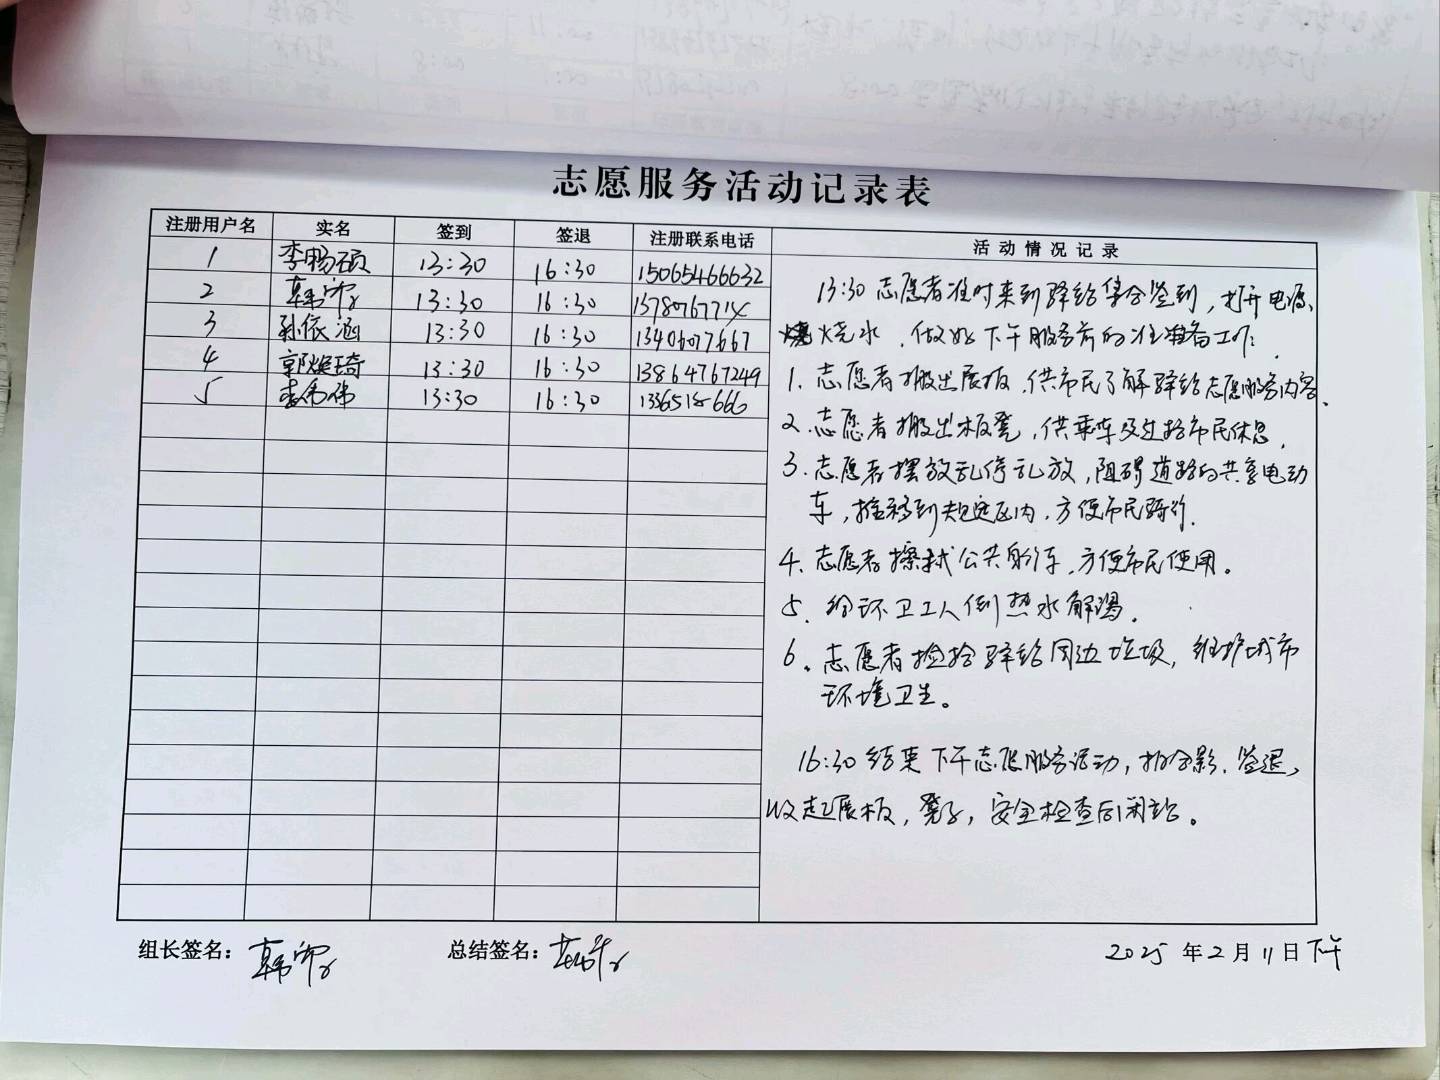 志愿服务活动记录表
注册用户名 实名 签到 签退 注册联系电话 活动情况记录
1 李畅硕 13:30 16:30 15065466632
2 13:30 16:30
3 孙依涵 13:30 16:30 13406077667
4 郭焕琦 13:30 16:30 13864767249
5 13:30 16:30
13:30 志愿者准时来到驿站集合签到,打开电源、
烧水,做好下午服务前的准备工作:
1、志愿者搬出展板,供市民了解驿站志愿服务内容、
2、志愿者搬出板凳,供乘车及过路市民休息、
3、志愿者摆放乱停乱放,阻碍道路的共享电动
车,推移到规定区内,方便市民骑行、
4、志愿者擦拭公共自行车,方便市民使用。
5、给环卫工人倒热水解渴。
6、志愿者捡拾驿站周边垃圾,维护城市
环境卫生。
16:30 结束下午志愿服务活动,拍合影、签退,
收起展板,凳子,安全检查后闭站。
组长签名: 总结签名: 2025年2月11日下午